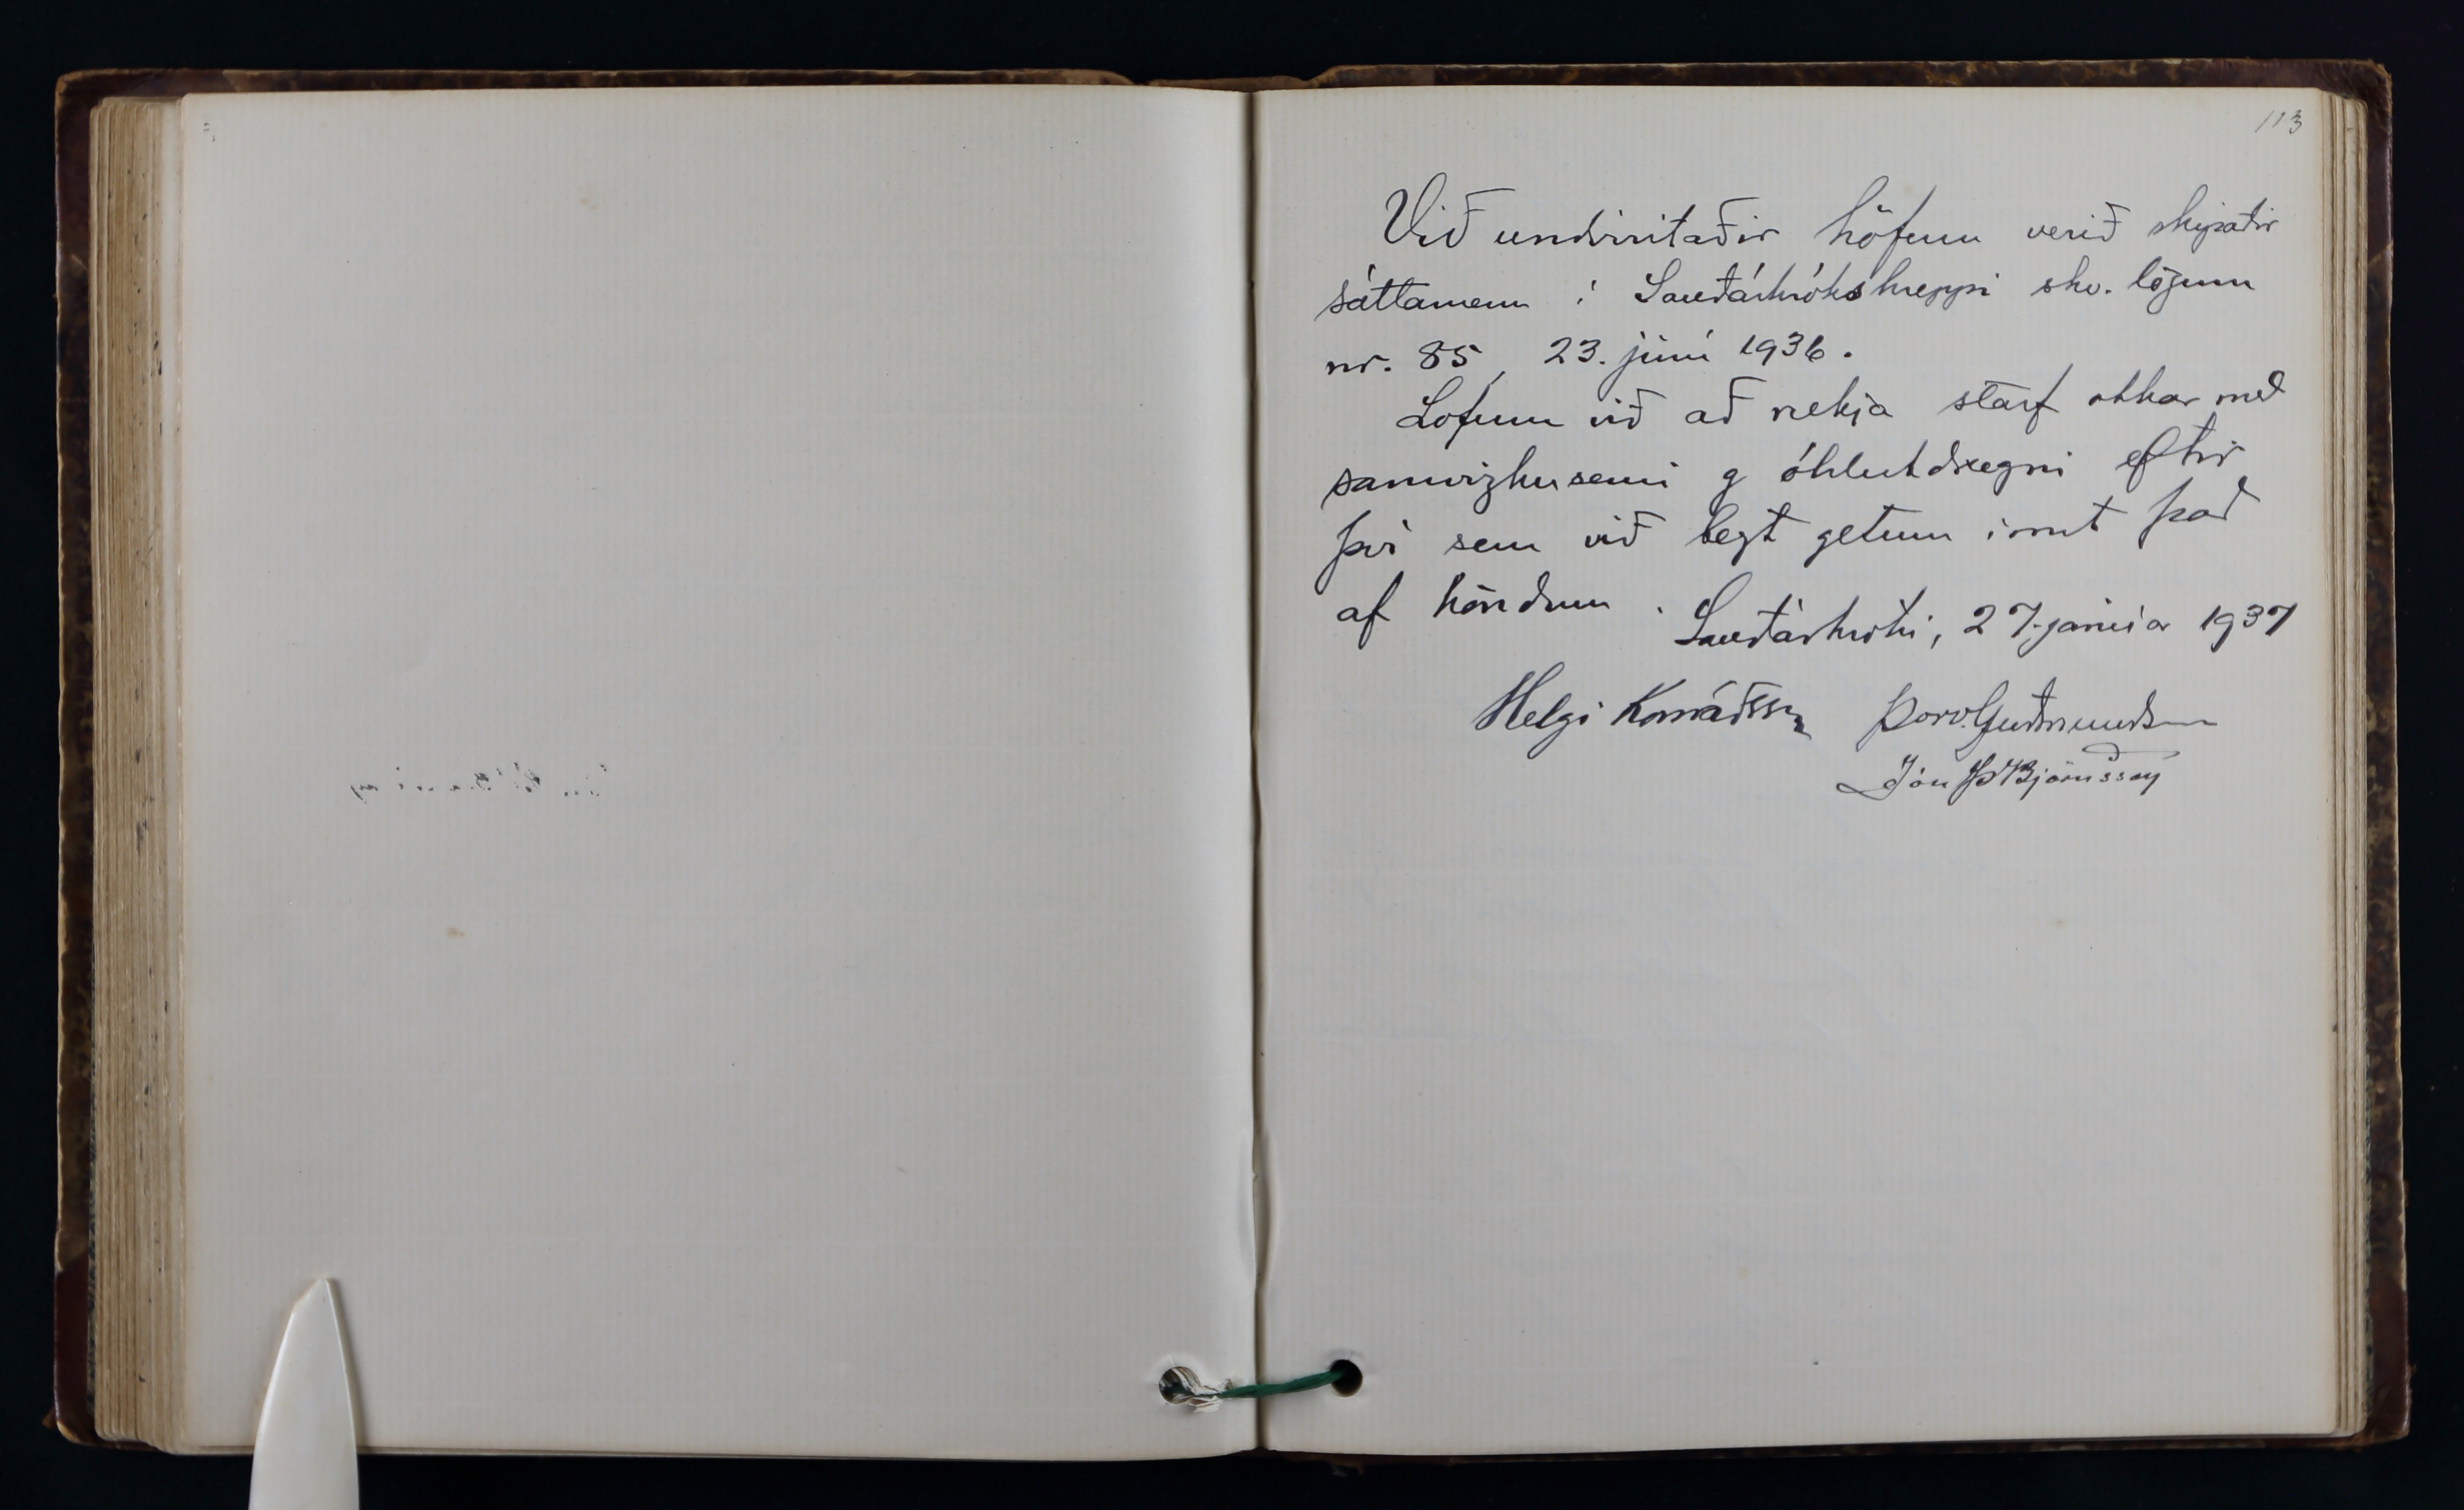 113
Við undirritaðir höfum verið skipaðir
sáttamenn í Sauðárkrókshreppi skv. lögum
nr. 85, 23. júní 1936.
Lofum við að rækja starf okkar með
samvizkusemi og óhlutdrægni eftir
því sem við bezt getum innt það
af höndum.
Sauðárkróki, 27. janúar 1937
Helgi Konráðsson Þorv. Guðmundsson
Jón Þ Björnsson